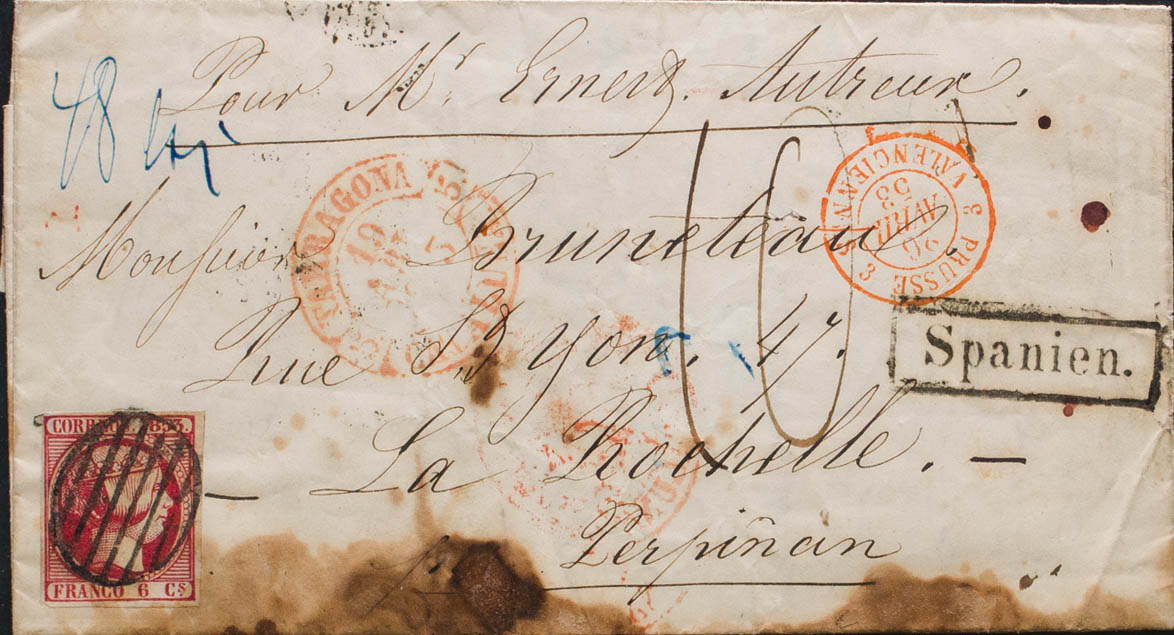 Pour Mr. Ernest. Autreux.
48
Monsieur Bruneteau
Rue St Yon. 47.
La Rochelle.
Perpiñan
TARRAGONA
19
PRUSSE 3 VALENCIENNES 3
26
AVRIL
53
Spanien.
CORREOS. 1853.
FRANCO 6 Cs